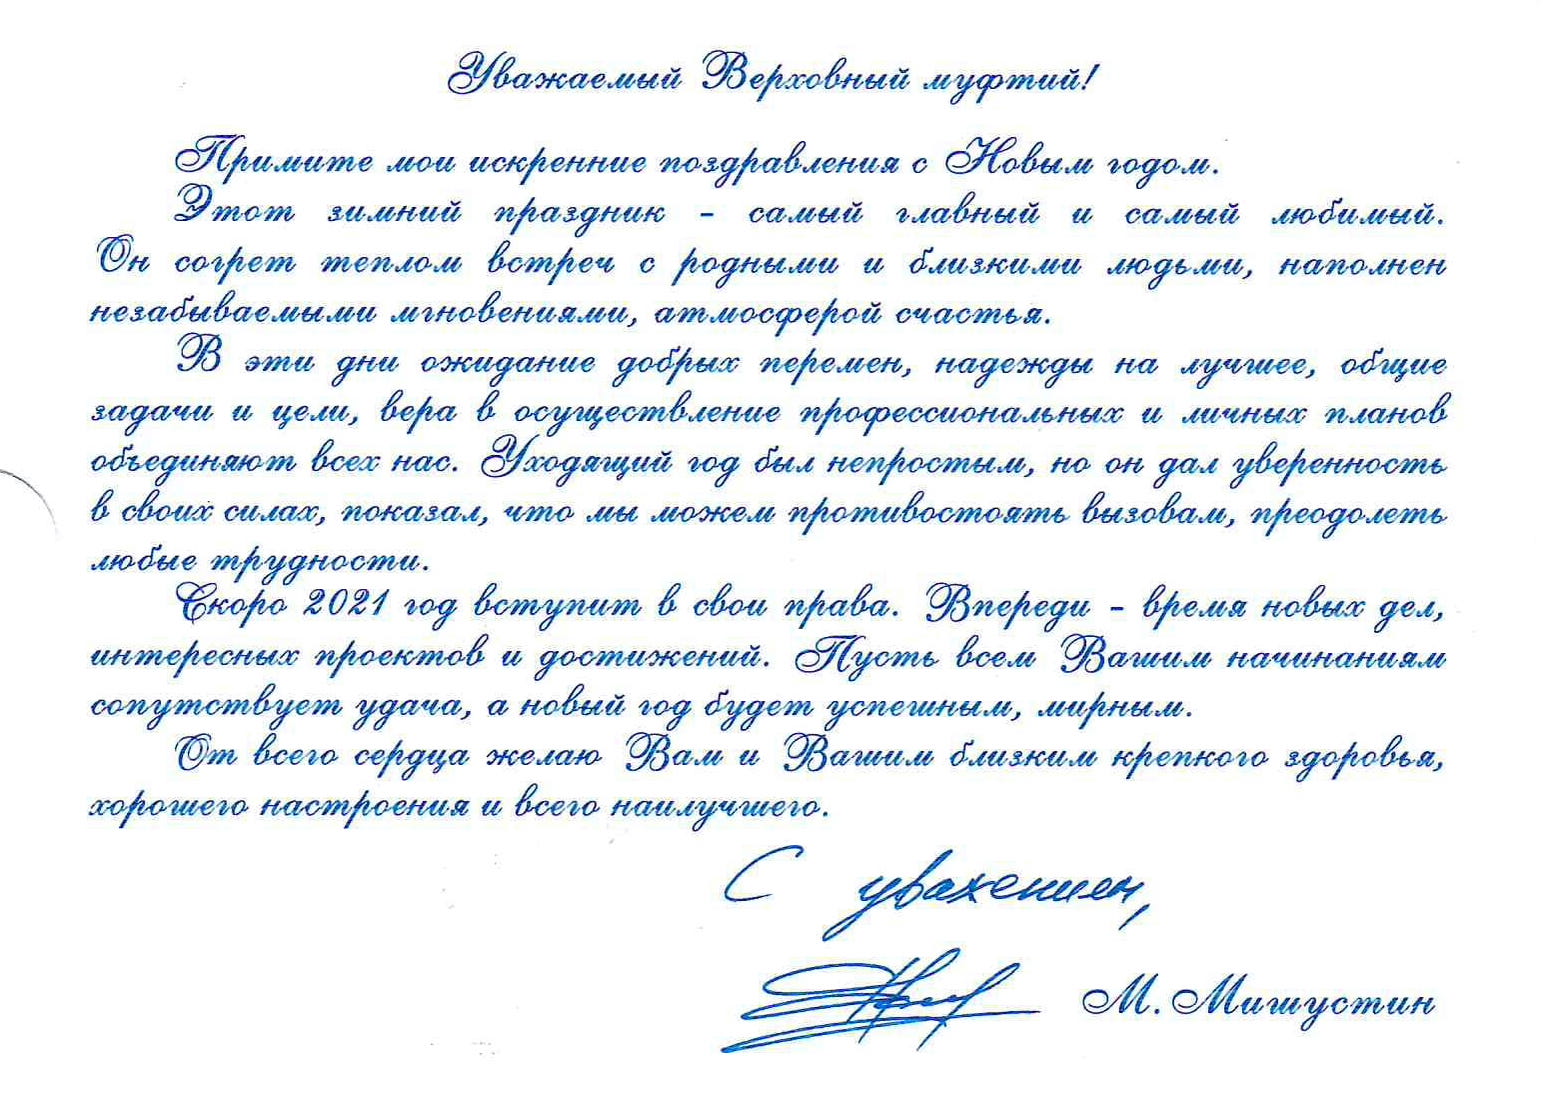 Уважаемый Верховный муфтий!
Примите мои искренние поздравления с Новым годом.
Этот зимний праздник - самый главный и самый любимый.
Он согрет теплом встреч с родными и близкими людьми, наполнен
незабываемыми мгновениями, атмосферой счастья.
В эти дни ожидание добрых перемен, надежды на лучшее, общие
задачи и цели, вера в осуществление профессиональных и личных планов
объединяют всех нас. Уходящий год был непростым, но он дал уверенность
в своих силах, показал, что мы можем противостоять вызовам, преодолеть
любые трудности.
Скоро 2021 год вступит в свои права. Впереди - время новых дел,
интересных проектов и достижений. Пусть всем Вашим начинаниям
сопутствует удача, а новый год будет успешным, мирным.
От всего сердца желаю Вам и Вашим близким крепкого здоровья,
хорошего настроения и всего наилучшего.
С уважением,
М. Мишустин